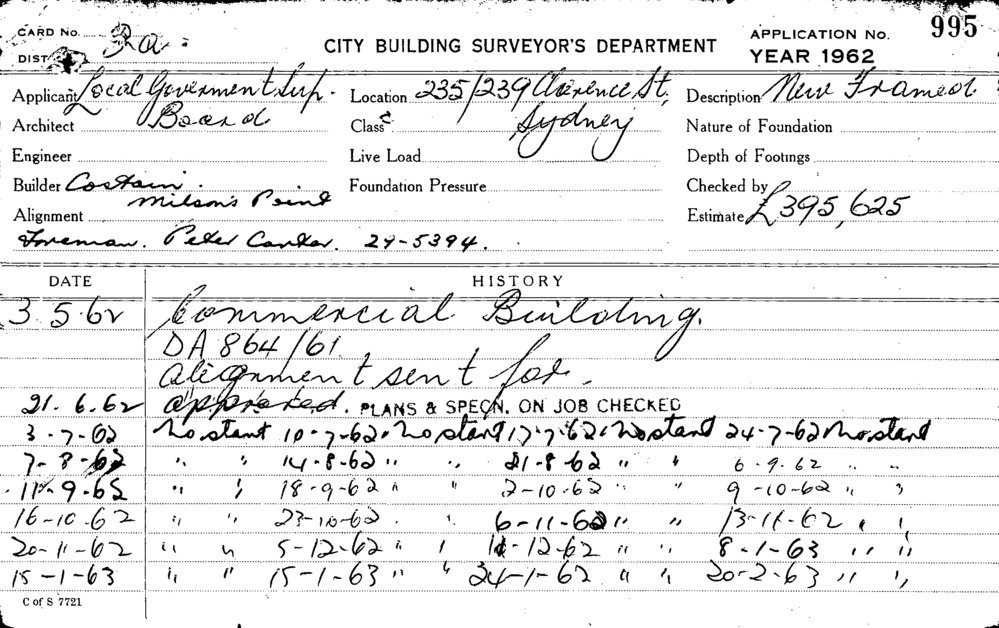 CARD No. 3a
DIST
CITY BUILDING SURVEYOR'S DEPARTMENT
APPLICATION No. 995
YEAR 1962
Applicant Local Goverment Sup. Location 235/239 Clarence St, Description New Framed
Architect Board Class c Sydney Nature of Foundation
Engineer Live Load Depth of Footings
Builder Costain. Foundation Pressure Checked by
Milson's Point
Alignment Estimate £395,625
Foreman. Peter 29-5394.
DATE HISTORY
3.5.62 Commercial Building.
DA 864/61
Alignment sent for.
21.6.62 approved. PLANS & SPECN. ON JOB CHECKED
3-7-62 No start 10-7-62. No start 17-7-62. No start 24-7-62 No start
7-8-62 " " 14-8-62 " " 21-8-62 " " 6-9-62 " "
11-9-62 " " 18-9-62 " " 2-10-62 " " 9-10-62 " "
16-10-62 " " 23-10-62 " " 6-11-62 " " 13-11-62 " "
20-11-62 " " 5-12-62 " " 11-12-62 " " 8-1-63 " "
15-1-63 " " 15-1-63 " " 24-1-62 " " 20-2-63 " "
C of S 7721